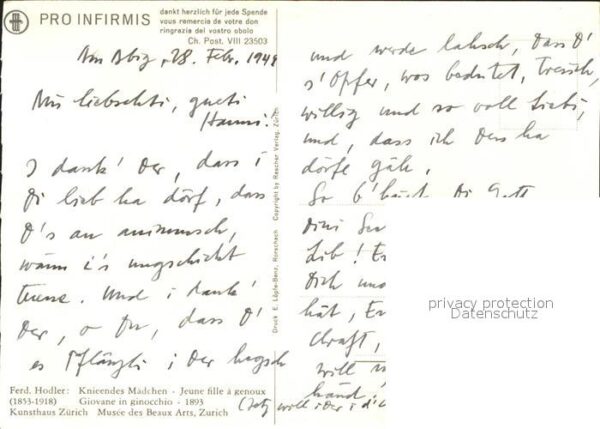 PRO INFIRMIS
dankt herzlich für jede Spende
vous remercia de votre don
ringrazia del vostro obolo
Ch. Post. VIII 23503
Am Abig, 28. Febr. 1949
Mis liebschti, gueti
Hanni!
I dank' Der, dass i
Di lieb ha dörf, dass
D's au animmsch,
wänn i's ungschickt
tuene. Und i dank'
Der, o Du, dass D'
es Pflänzli i Der hegsch
und werde lahsch, dass D'
s'Opfer, was bedütet, treisch,
willig und so voll Liebi,
und, dass ich Ders ha
dörfe gäh,
So b'hüet Di Gott
Dini
Lib!
Dich und
hät,
chraft,
will
händ!
(Jetz will i der i d
Druck E. Löpfe-Benz, Rorschach Copyright by Rascher Verlag, Zürich
Ferd. Hodler: Knieendes Mädchen - Jeune fille à genoux
(1853-1918) Giovane in ginocchio - 1893
Kunsthaus Zürich Musée des Beaux Arts, Zurich
privacy protection
Datenschutz